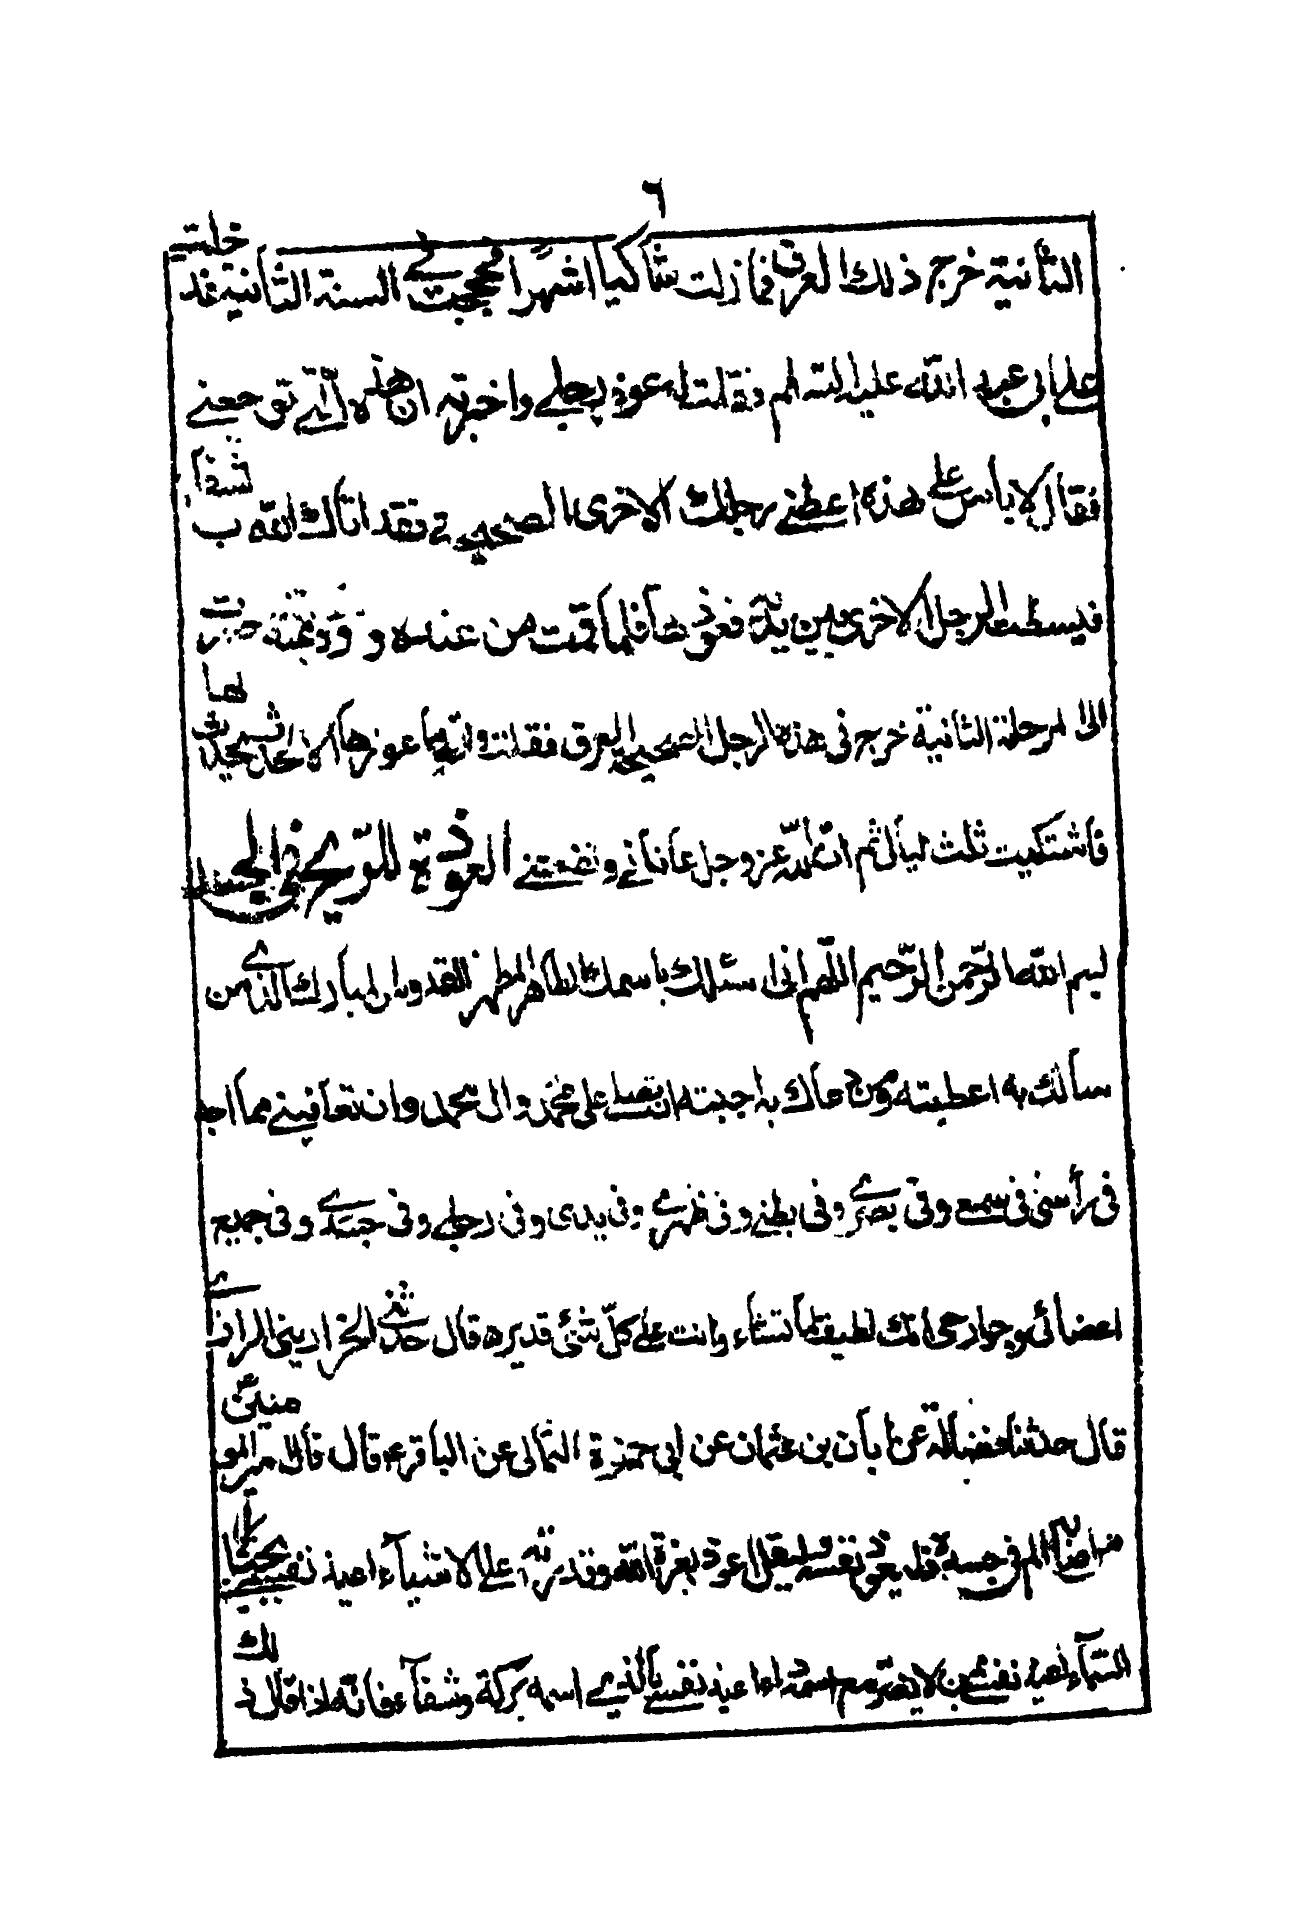 ٦
الثانية خرج ذلك العرق فما زلت شاكيا اشهرا فحججت فى السنة الثانية فدخلت
على ابى عبد الله عليه السلم فقلت له عوذ رجلى واخبرته ان هذه التى توجعنى
فقال لا باس على هذه اعطنى رجلك الاخرى الصحيحة فقد اتاك الله بشفآ
فبسطت الرجل الاخرى بين يديه فعوذها فلما قمت من عنده وودعته صرت
الى المرحلة الثانية خرج فى هذه الرجل الصحيحة العرق فقلت والله ما عوذها الا لحدث يحدث بها
فاشتكيت ثلث ليال ثم ان الله عز وجل عافانى ونفعتنى العوذة للريح فى الجسد
بسم الله الرحمن الرحيم اللهم انى اسئلك باسمك الطاهر المطهر القدوس المبارك الذى من
سألك به اعطيته ومن دعاك به اجبته ان تصلى على محمد وال محمد وان تعافينى مما اجد
فى رأسى وفى سمعى وفى بصرى وفى بطنى وفى ظهرى وفى يدى وفى رجلى وفى جسدى وفى جميع
اعضائى وجوارحى انك لطيف لما تشاء وانت على كل شئ قدير ه قال حدثنى الخرازينى الرازى
قال حدثنا فضالة عن ابان بن عثمان عن ابى حمزة الثمالى عن الباقر ع قال قال امير المومنين ع
من اصابه الم فى جسده فليعوذ نفسه وليقل اعوذ بعزة الله وقدرته على الاشيآء اعيذ نفسى بجبار
السمآء اعيذ نفسى بمن لا يضر مع اسمه داء اعيذ نفسى بالذى اسمه بركة وشفآء فانه اذا قال ذلك